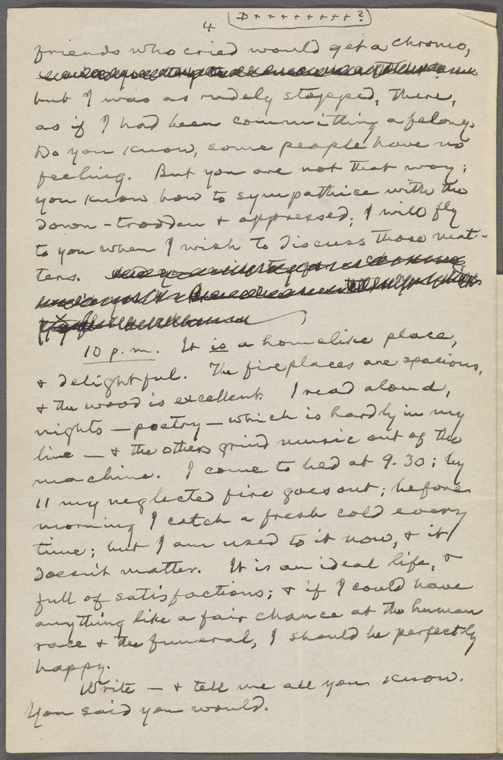 4
D+++++++++?
friends who cried would get a chromo,
but I was as rudely stopped, there,
as if I had been committing a felony.
Do you know, some people have no
feeling. But you are not that way;
you know how to sympathize with the
down-trodden & oppressed; I will fly
to you when I wish to discuss those mat-
ters.
10 p.m. It is a homelike place,
& delightful. The fireplaces are spacious,
& the wood is excellent. I read aloud,
nights — poetry — which is hardly in my
line — & the others grind music out of the
machine. I come to bed at 9.30; by
11 my neglected fire goes out; before
morning I catch a fresh cold every
time; but I am used to it now, & it
doesn't matter. It is an ideal life, &
full of satisfactions; & if I could have
anything like a fair chance at the human
race & the funeral, I should be perfectly
happy.
Write — & tell me all you know.
You said you would.